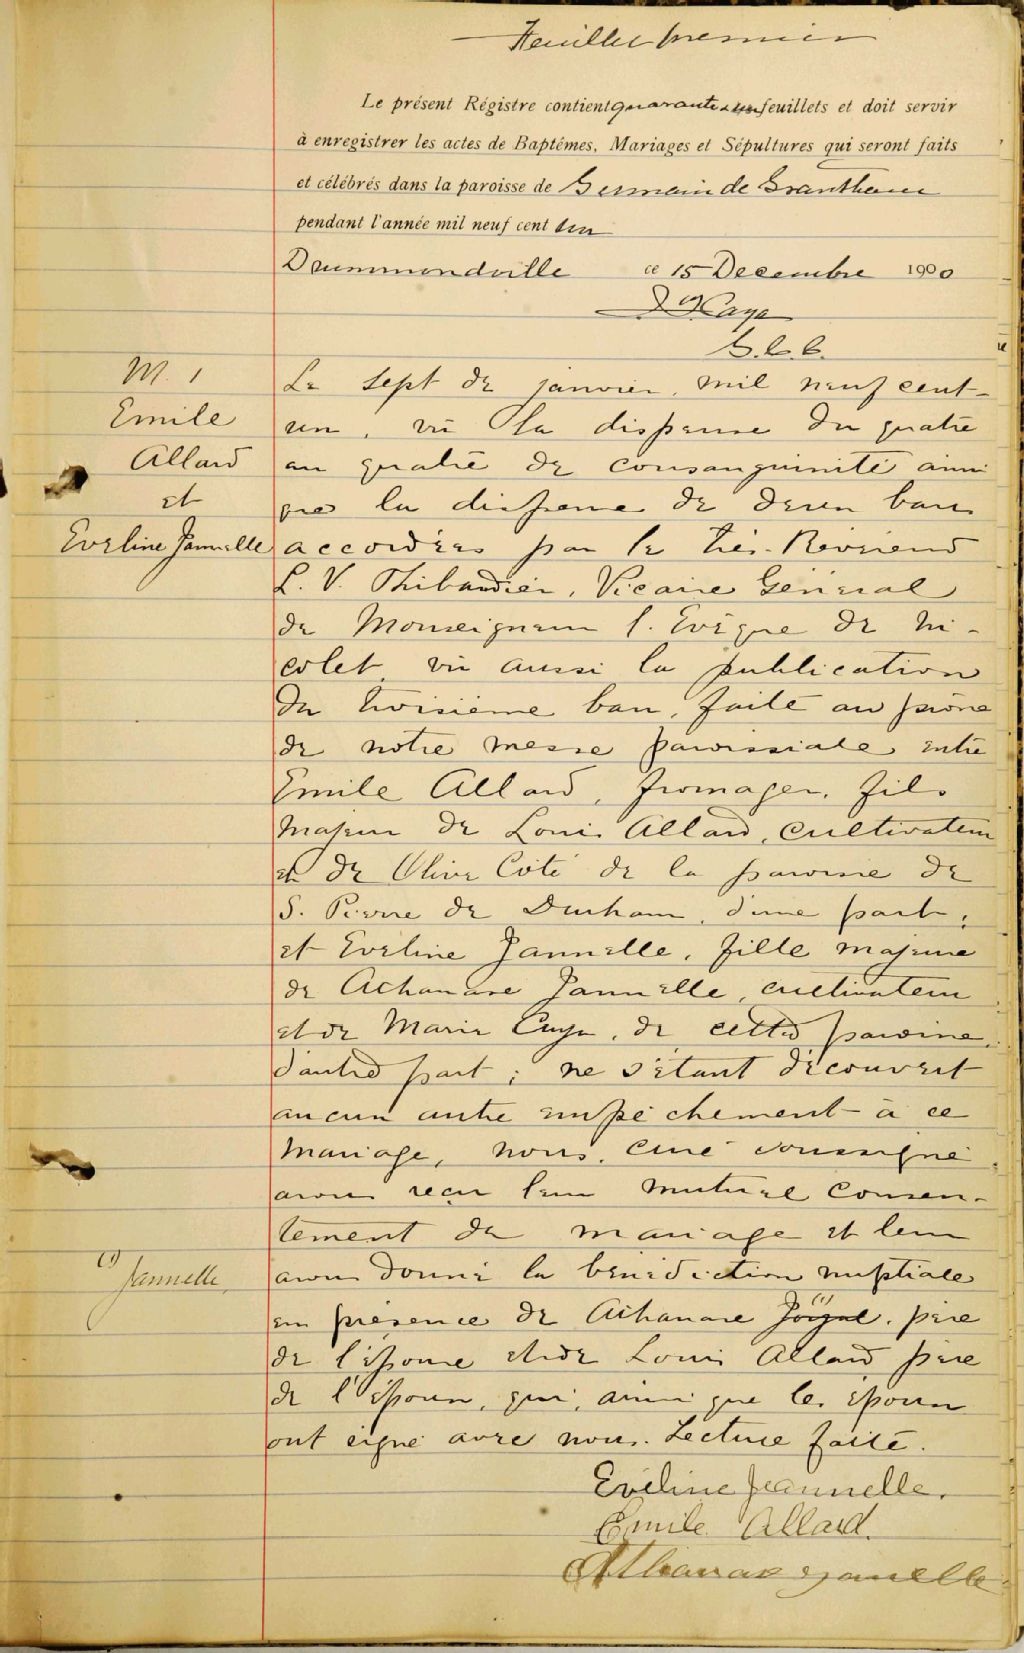 Feuillet premier
Le présent Régistre contient quarante & un feuillets et doit servir
à enregistrer les actes de Baptêmes, Mariages et Sépultures qui seront faits
et célébrés dans la paroisse de S Germain de Grantham
pendant l'année mil neuf cent un
Drummondville ce 15 Decembre 1900
Caya
G.C.C.
M. 1
Emile
Allard
et
Eveline Jannelle
Le sept de janvier, mil neuf cent-
un, vu la dispense du quatre
au quatre de consanguinité ainsi
que la dispense de deux bans
accordées par le Très-Révérend
L. V. Thibaudier, Vicaire Général
de Monseigneur l'Evêque de Ni-
colet, vu aussi la publication
du troisième ban, faite au prône
de notre messe paroissiale entre
Emile Allard, fromager, fils
majeur de Louis Allard, cultivateur
et de Olive Coté de la paroisse de
S. Pierre de Durham, d'une part,
et Eveline Jannelle, fille majeure
de Athanase Jannelle, cultivateur
et de Marie Caya, de cette paroisse,
d'autre part; ne s'étant découvert
aucun autre empêchement à ce
mariage, nous, curé soussigné
avons reçu leur mutuel consen-
tement de mariage et leur
avons donné la bénédiction nuptiale
(1) Jannelle,
en présence de Athanase Joyal (1), père
de l'épouse et de Louis Allard père
de l'époux, qui, ainsi que les époux
ont signé avec nous. Lecture faite.
Evéline Jeannelle.
Emile Allard.
Athanase Janelle